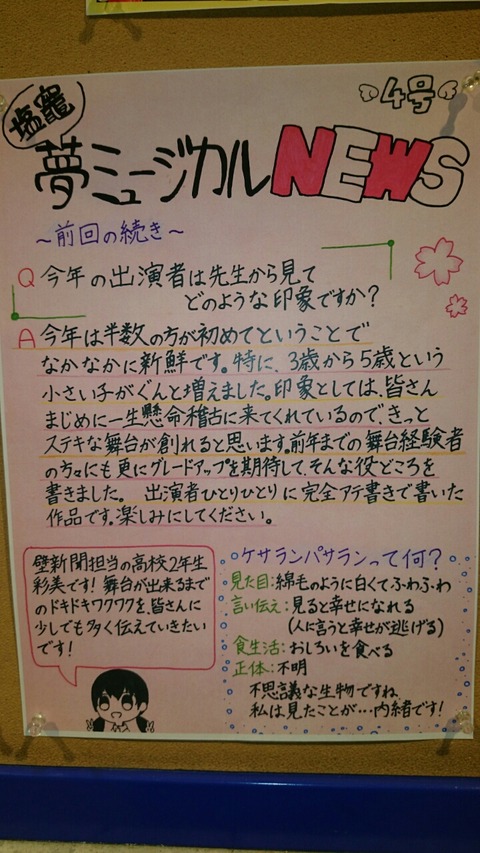 塩竈
4号
夢ミュージカルNEWS
〜前回の続き〜
Q 今年の出演者は先生から見て
どのような印象ですか？
A 今年は半数の方が初めてということで
なかなかに新鮮です。特に、3歳から5歳という
小さい子がぐんと増えました。印象としては、皆さん
まじめに一生懸命稽古に来てくれているので、きっと
ステキな舞台が創れると思います。前年までの舞台経験者
の方々にも更にグレードアップを期待して、そんな役どころを
書きました。 出演者ひとりひとりに完全アテ書きで書いた
作品です。楽しみにしてください。
壁新聞担当の高校2年生
彩美です！舞台が出来るまで
のドキドキワクワクを、皆さんに
少しでも多く伝えていきたい
です！
ケサランパサランって何？
見た目：綿毛のように白くてふわふわ
言い伝え：見ると幸せになれる
（人に言うと幸せが逃げる）
食生活：おしろいを食べる
正体：不明
不思議な生物ですね
私は見たことが…内緒です！